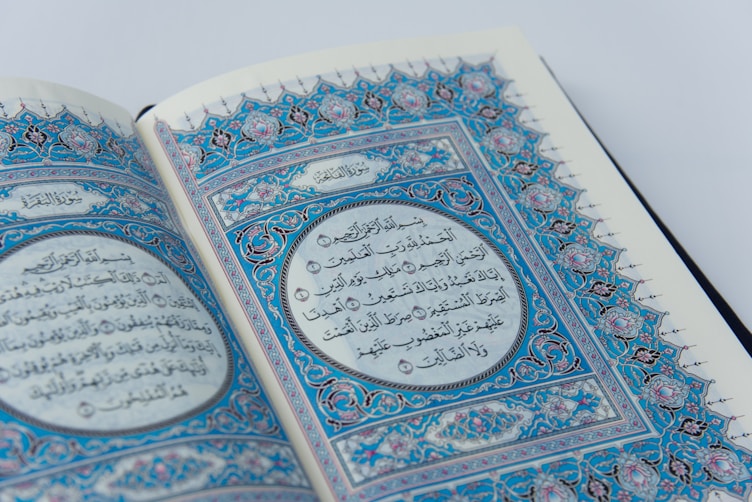 سُورَةُ الفَاتِحَةِ
بِسْمِ ٱللَّهِ ٱلرَّحْمَٰنِ ٱلرَّحِيمِ ١
ٱلْحَمْدُ لِلَّهِ رَبِّ ٱلْعَٰلَمِينَ ٢
ٱلرَّحْمَٰنِ ٱلرَّحِيمِ ٣ مَٰلِكِ يَوْمِ ٱلدِّينِ ٤
إِيَّاكَ نَعْبُدُ وَإِيَّاكَ نَسْتَعِينُ ٥ ٱهْدِنَا
ٱلصِّرَٰطَ ٱلْمُسْتَقِيمَ ٦ صِرَٰطَ ٱلَّذِينَ أَنْعَمْتَ
عَلَيْهِمْ غَيْرِ ٱلْمَغْضُوبِ عَلَيْهِمْ
وَلَا ٱلضَّآلِّينَ ٧
سُورَةُ البَقَرَةِ
بِسْمِ ٱللَّهِ ٱلرَّحْمَٰنِ ٱلرَّحِيمِ
الٓمٓ ١ ذَٰلِكَ ٱلْكِتَٰبُ لَا رَيْبَ فِيهِ هُدًى
لِّلْمُتَّقِينَ ٢ ٱلَّذِينَ يُؤْمِنُونَ بِٱلْغَيْبِ وَيُقِيمُونَ
وَمِمَّا رَزَقْنَٰهُمْ يُنفِقُونَ ٣ وَٱلَّذِينَ يُؤْمِنُونَ
مِن قَبْلِكَ وَبِٱلْءَاخِرَةِ هُمْ يُوقِنُونَ ٤
أُو۟لَٰٓئِكَ عَلَىٰ هُدًى مِّن رَّبِّهِمْ وَأُو۟لَٰٓئِكَ
هُمُ ٱلْمُفْلِحُونَ ٥